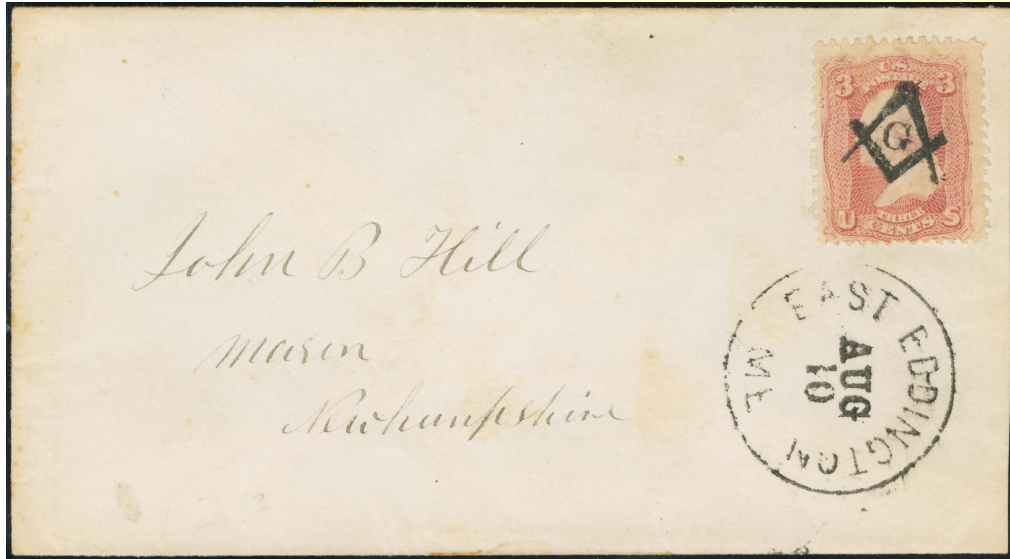 3 U.S. 3
POSTAGE
G
U THREE S
CENTS
John B Hill
Mason
Newhampshire
EAST EDDINGTON ME
AUG
10